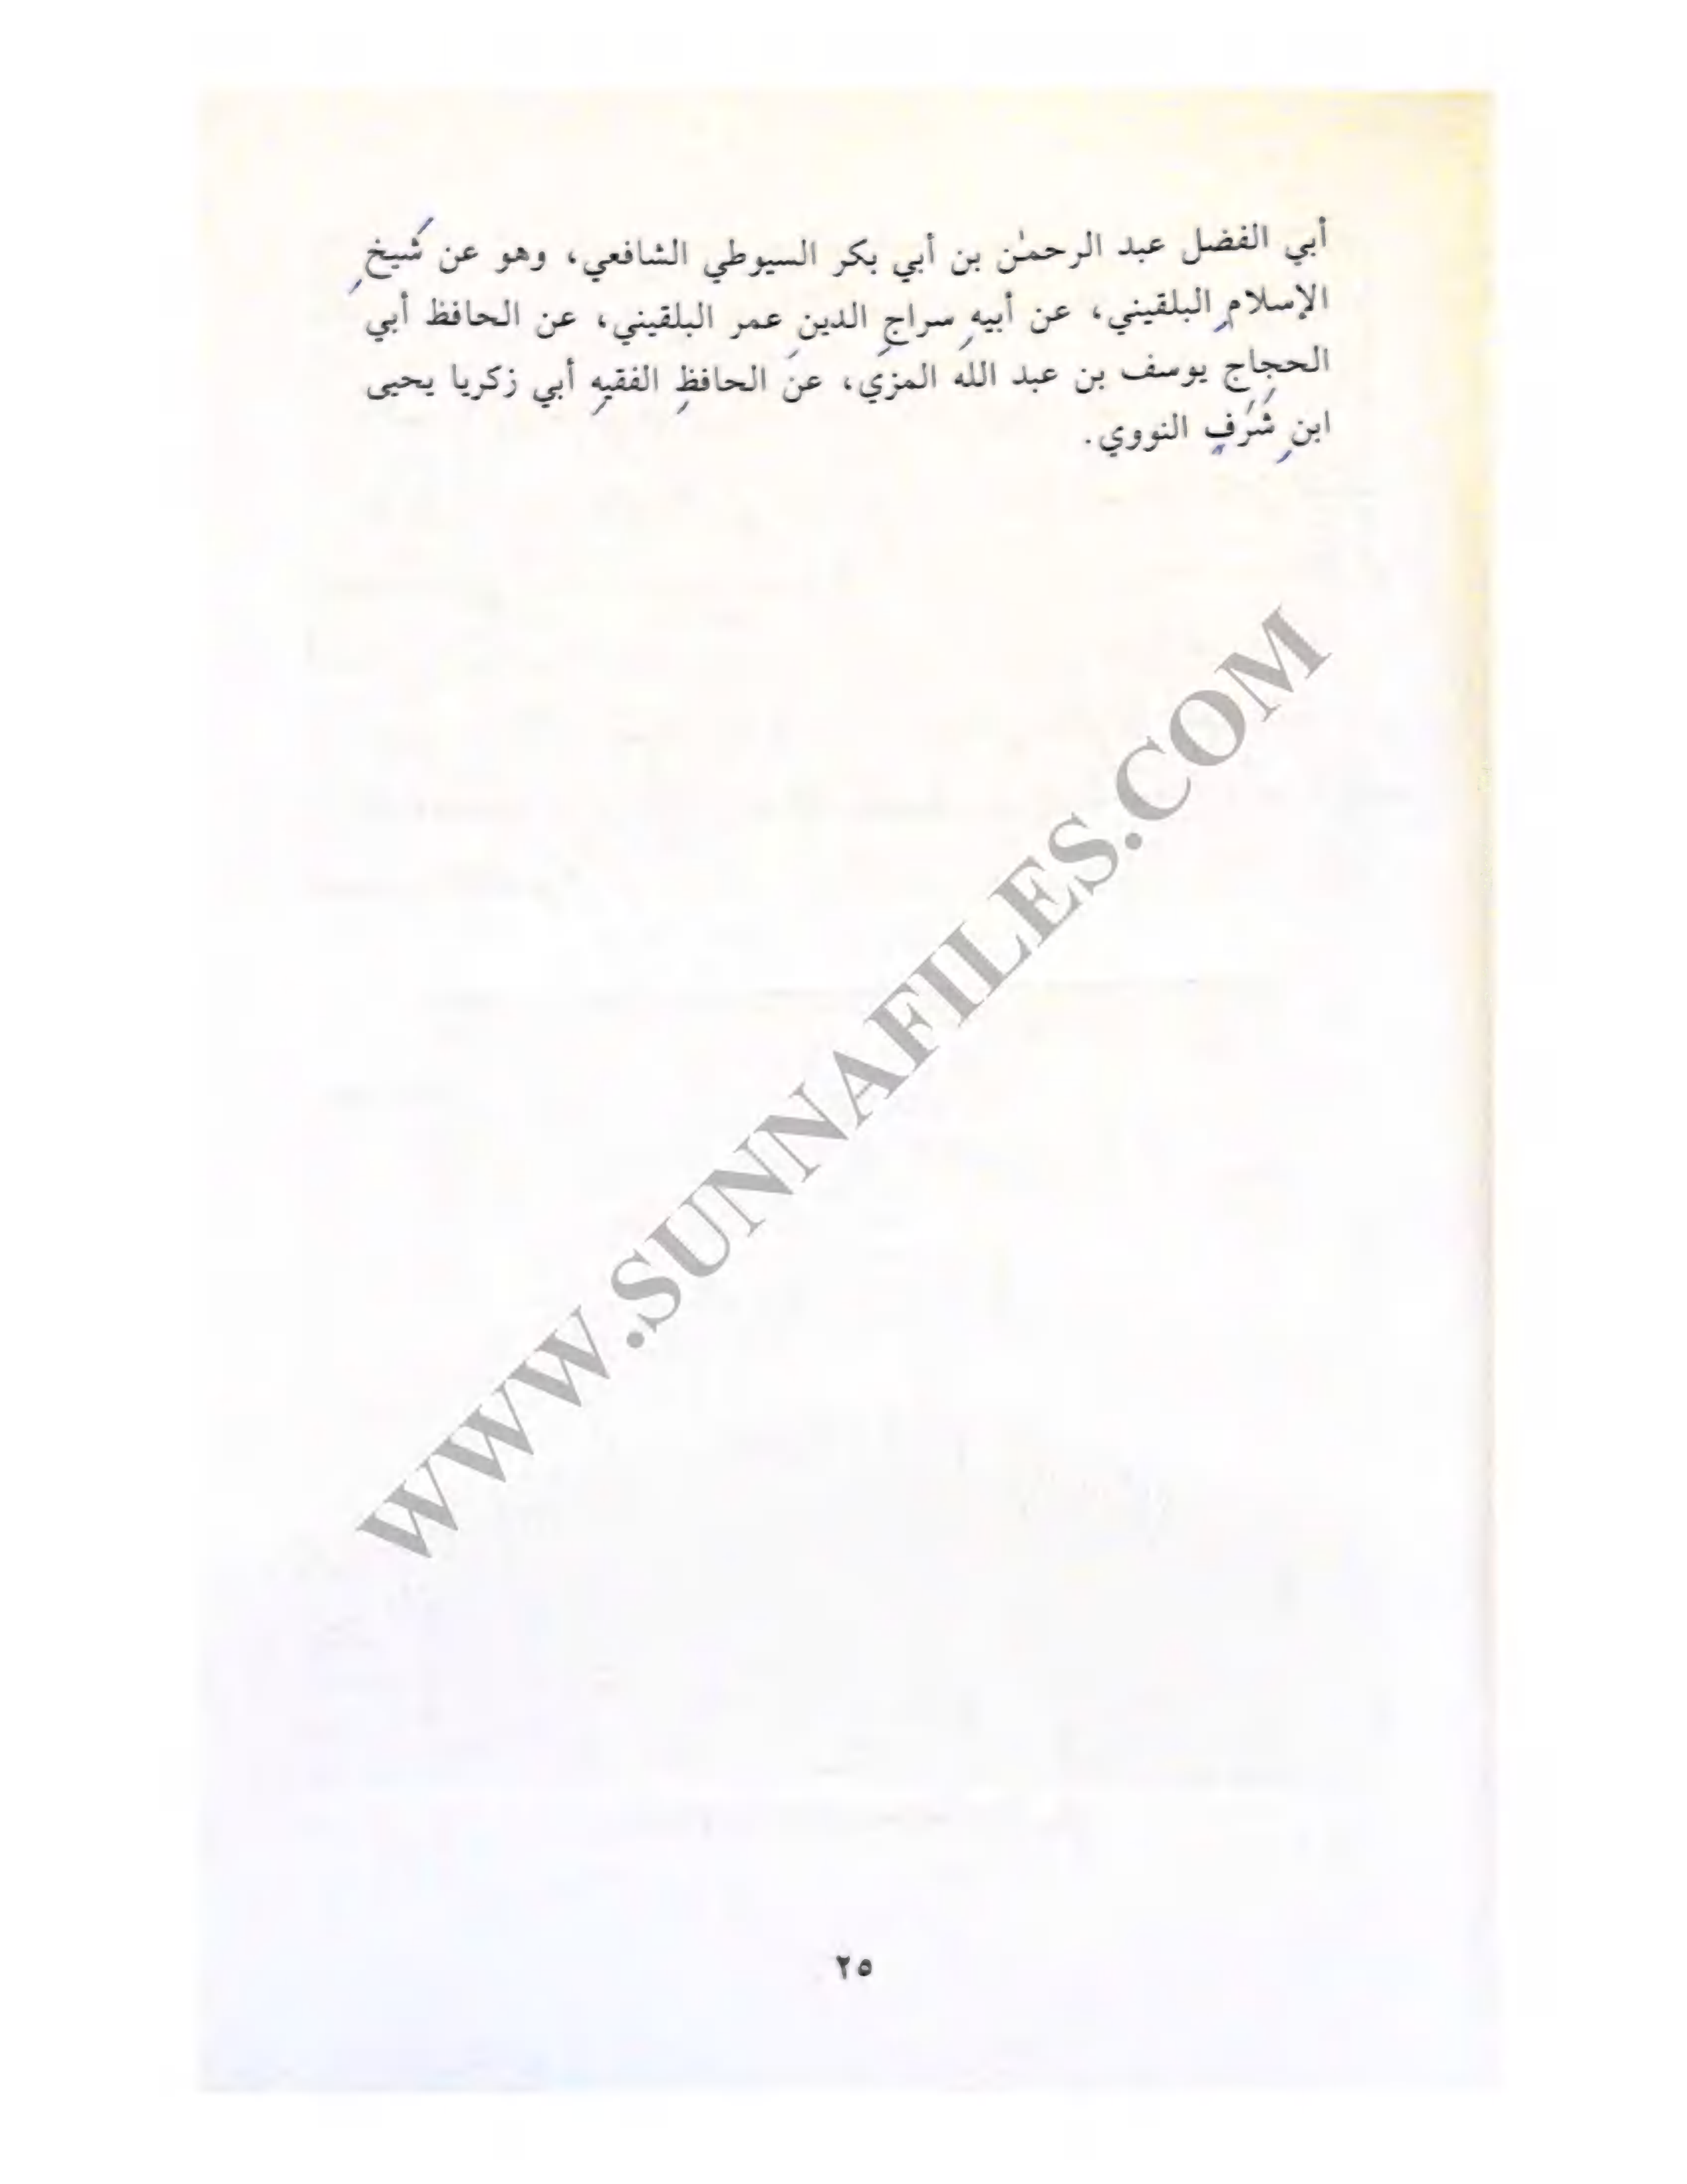 أبي الفضل عبد الرحمٰن بن أبي بكر السيوطي الشافعي، وهو عن شَيخِ
الإسلامِ البلقيني، عن أبيهِ سراجِ الدينِ عمر البلقيني، عن الحافظ أبي
الحجاجِ يوسف بن عبد الله المزي، عن الحافظِ الفقيهِ أبي زكريا يحيى
ابنِ شَرَفٍ النووي.
WWW.SUNNAFILES.COM
٢٥